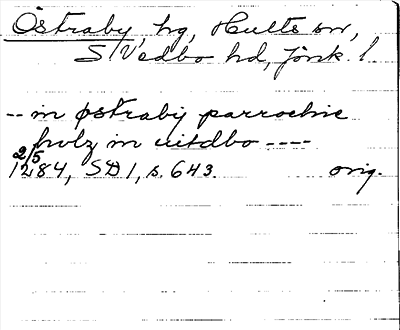 Östraby, hg, Hults sn,
S Vedbo hd, Jönk. l
-- in østraby parrochie
hulz in uitdbo ----
2/5
1284, SD 1, s. 643. orig.